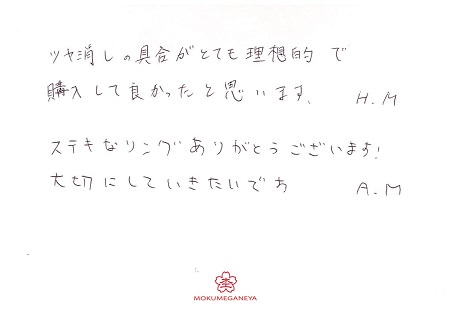 ツヤ消しの具合がとても理想的で
購入して良かったと思います。 H.M
ステキなリングありがとうございます!
大切にしていきたいです A.M
MOKUMEGANEYA